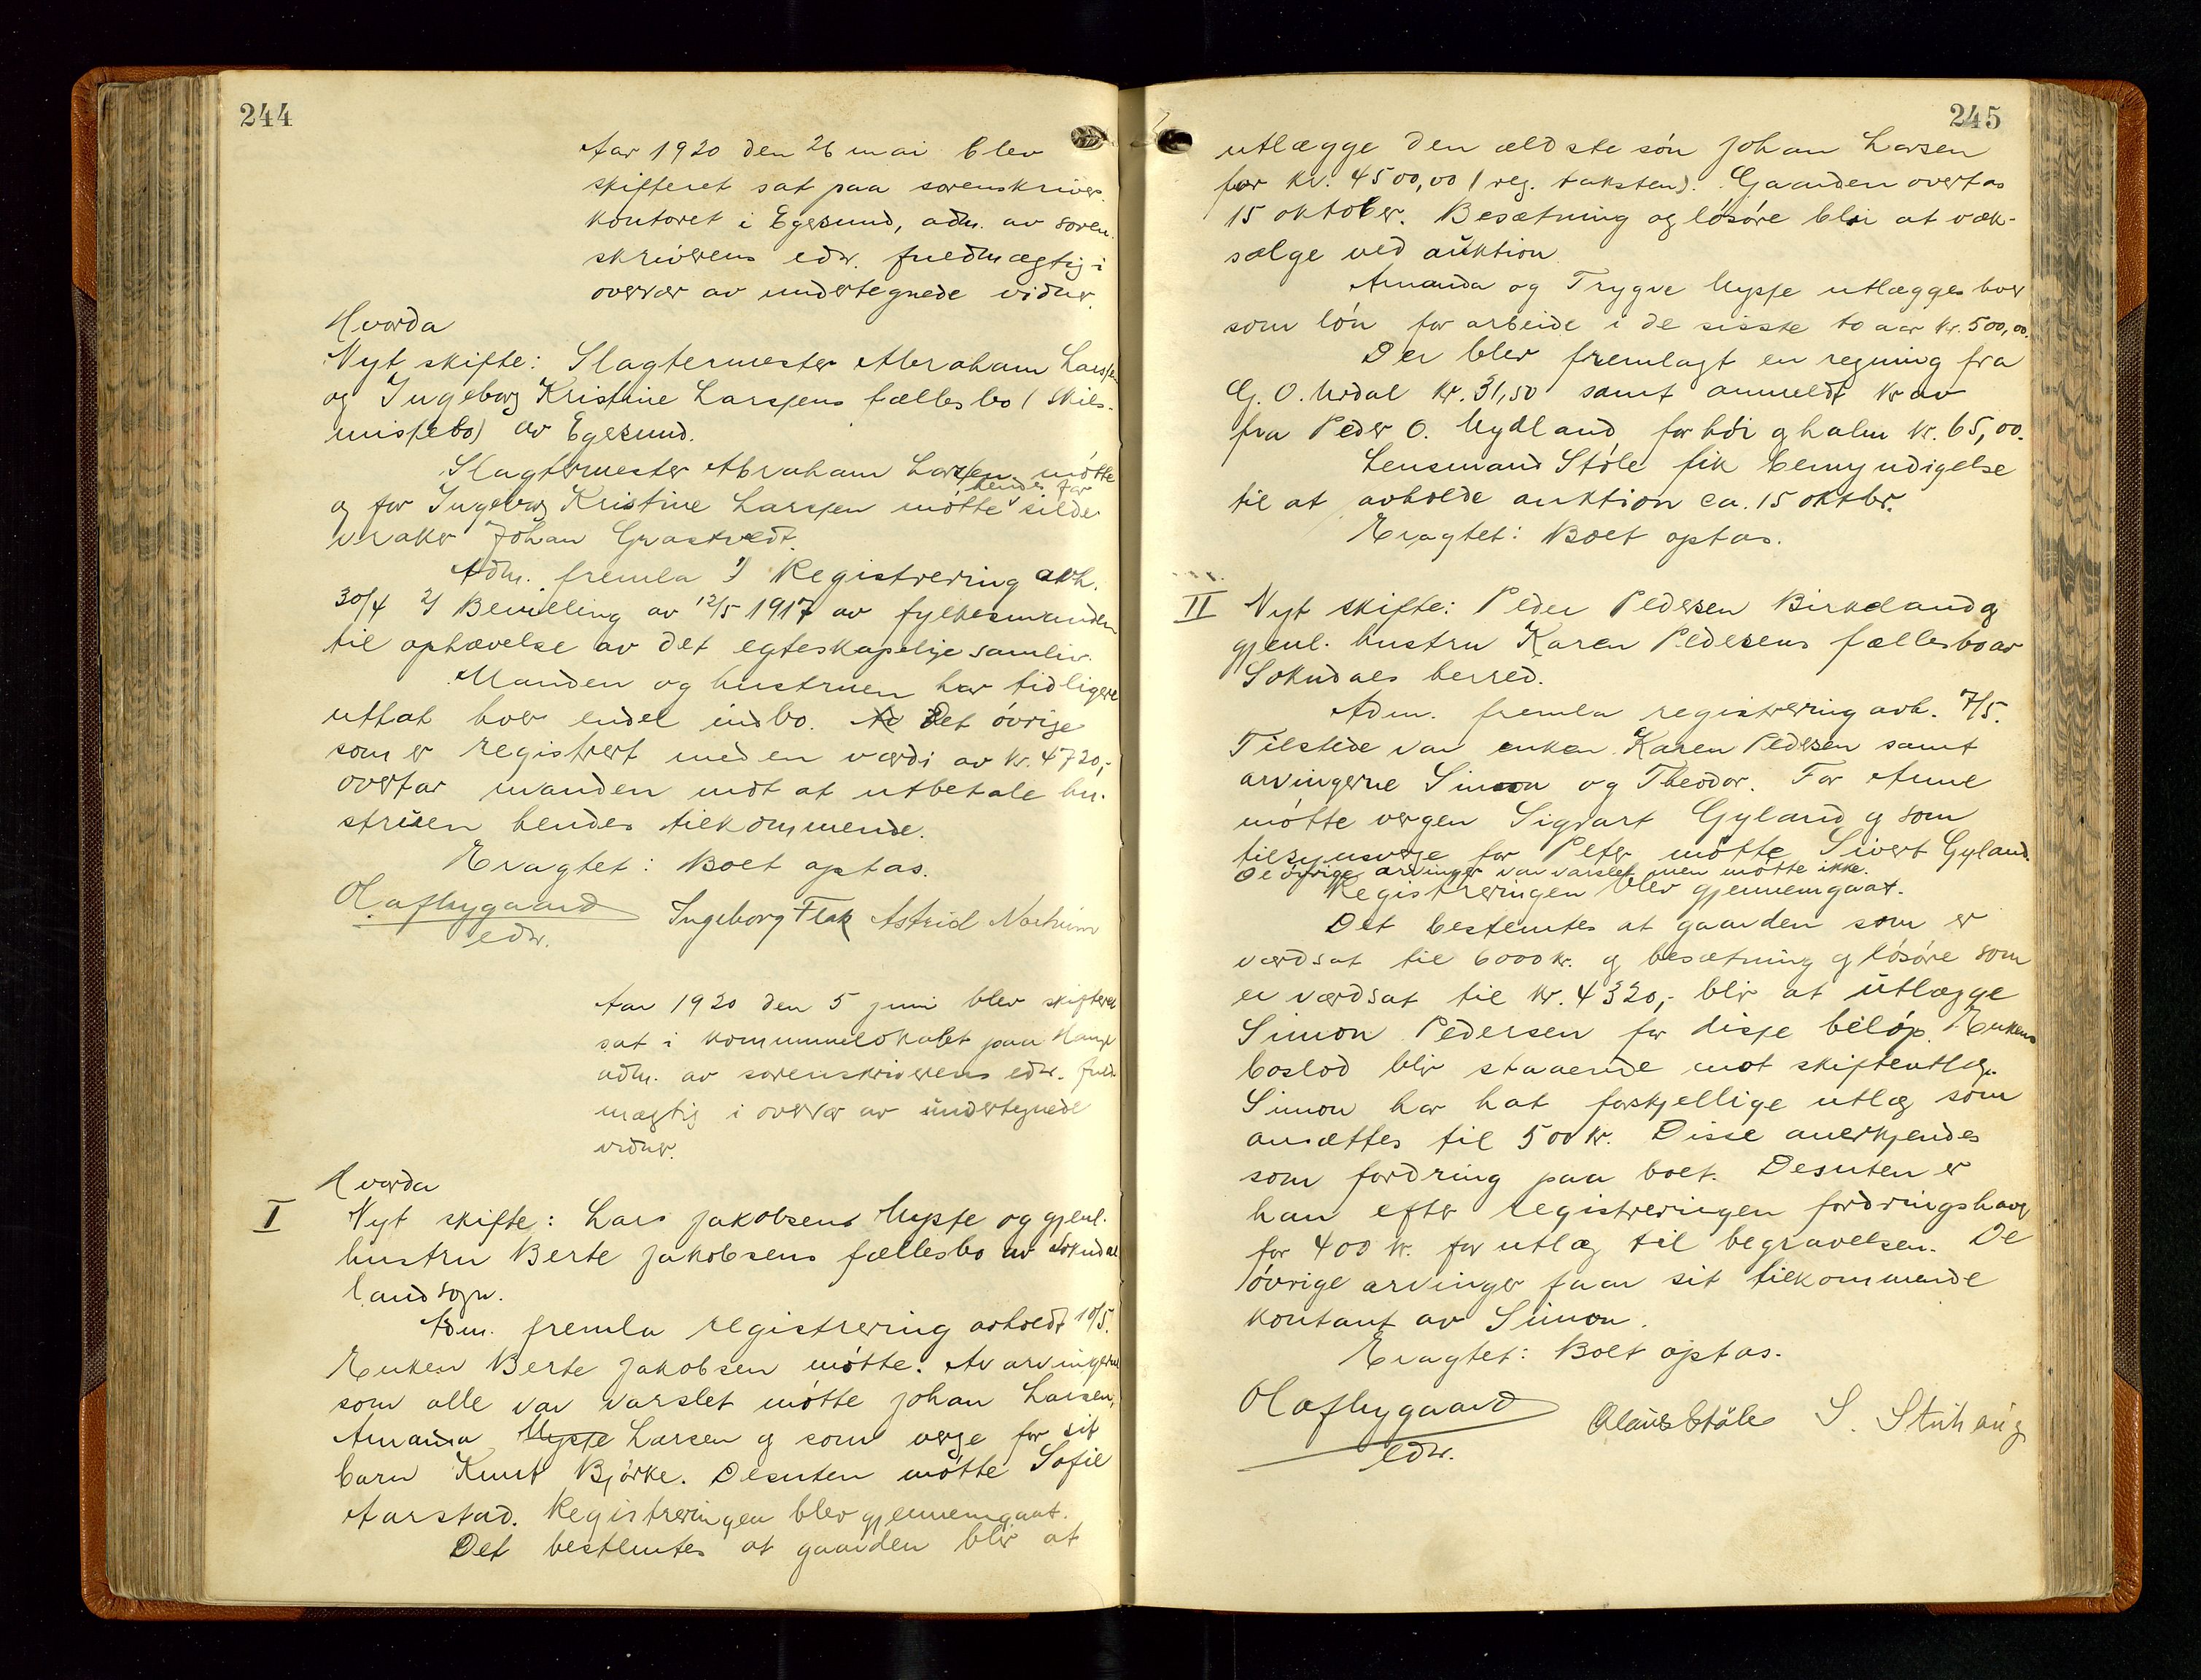 244
Aar 1920 den 26 mai blev
skifteret sat paa sorenskriver-
kontoret i Egersund, adm. av soren-
skriverens edsv. fuldmægtig i
overvær av undertegnede vidner.
Hvorda
Nyt skifte: Slagtermester Abraham Larssen
og Ingeborg Kristine Larssens fællesbo (Skils-
missebo) av Egersund.
Slagtermester Abraham Larssen møtte
og for Ingeborg Kristine Larssen møtte hendes far silde-
vraker Johan Grastvedt.
Adm. fremla 1) Registrering avh.
30/4 2) Bevilling av 12/5 1917 av fylkesmanden
til ophævelse av det egteskapelige samliv.
Manden og hustruen har tidligere
uttat hver endel indbo. Det øvrige
som er registrert med en værdi av kr. 4720,-
overtar manden mot at utbetale hu-
struen hendes tilkommende.
Eragtet: Boet optas.
Olaf Nygaard Ingeborg Flak Astrid
edsv.
Aar 1920 den 5 juni blev skifteret
sat i kommunelokalet paa Hauge
adm. av sorenskriverens edsv. fuld-
mægtig i overvær av undertegnede
vidner.
Hvorda
I Nyt skifte: Lars Jakobsens Mysse og gjenl.
hustru Berte Jakobsens fællesbo av Sokndal
landsogn.
Adm. fremla registrering avholdt 10/5.
Enken Berte Jakobsen møtte. Av arvingerne
som alle var varslet møtte Johan Larsen,
Amanda Mysse Larsen og som verge for sit
barn Knut Bjørke. Desuten møtte Sofie
Aarstad. Registreringen blev gjennemgaat.
Det bestemtes at gaarden blir at
245
utlægge den ældste søn Johan Larsen
for kr. 4500,00 (reg. taksten). Gaarden overtas
15 oktober. Besætning og løsøre blir at væk-
sælge ved auktion.
Amanda og Trygve Mysse utlægges hver
som løn for arbeide i de sisste to aar kr. 500,00.
Der blev fremlagt en regning fra
G. O. Urdal kr. 31,50 samt anmeldt krav
fra Peder O. Mydland for høi og halm kr. 65,00.
Lensmand Støle fik bemyndigelse
til at avholde auktion ca. 15 oktbr.
Eragtet: Boet optas.
II Nyt skifte: Peder Pedersen Birkeland og
gjenl. hustru Karen Pedersens fællesbo av
Sokndals herred.
Adm. fremla registrering avh. 7/5.
Tilstede var enken Karen Pedersen samt
arvingerne Simon og Theodor. For Anne
møtte vergen Sigvart Gyland og som
tilsynsverge for Peter møtte Sivert Gyland.
De øvrige arvinger var varslet men møtte ikke.
Registreringen blev gjennemgaat.
Det bestemtes at gaarden som er
værdsat til 6000 kr. og besætning og løsøre som
er værdsat til kr. 4320,- blir at utlægge
Simon Pedersen for disse beløp. Enkens
boslod blir staaende mot skifteutlæg.
Simon har hat forskjellige utlæg som
ansættes til 500 kr. Disse anerkjendes
som fordring paa boet. Desuten er
han efter registreringen fordringshaver
for 400 kr. for utlæg til begravelsen. De
øvrige arvinger faar sit tilkommende
kontant av Simon.
Eragtet: Boet optas.
Olaf Nygaard Olaus Støle S.
edsv.